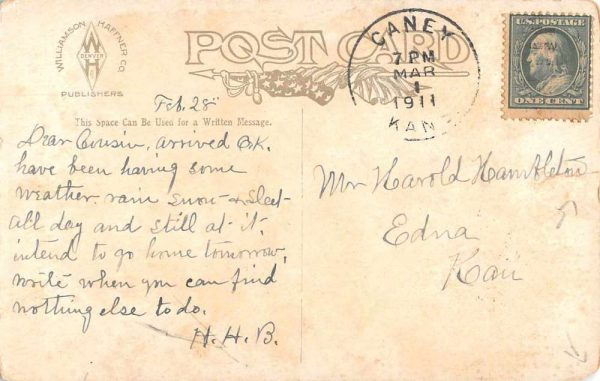 WILLIAMSON HAFFNER CO.
DENVER
W H
PUBLISHERS
POST CARD
CANEY
7 PM
MAR
1
1911
KAN
U.S. POSTAGE
ONE CENT
Feb. 28
This Space Can Be Used for a Written Message.
Dear Cousin, arrived O.K.
have been having some
weather. rain snow & sleet
all day and still at it,
intend to go home tomorrow,
write when you can find
nothing else to do.
H. H. B.
Mr Harold Hambleton
Edna
Kan